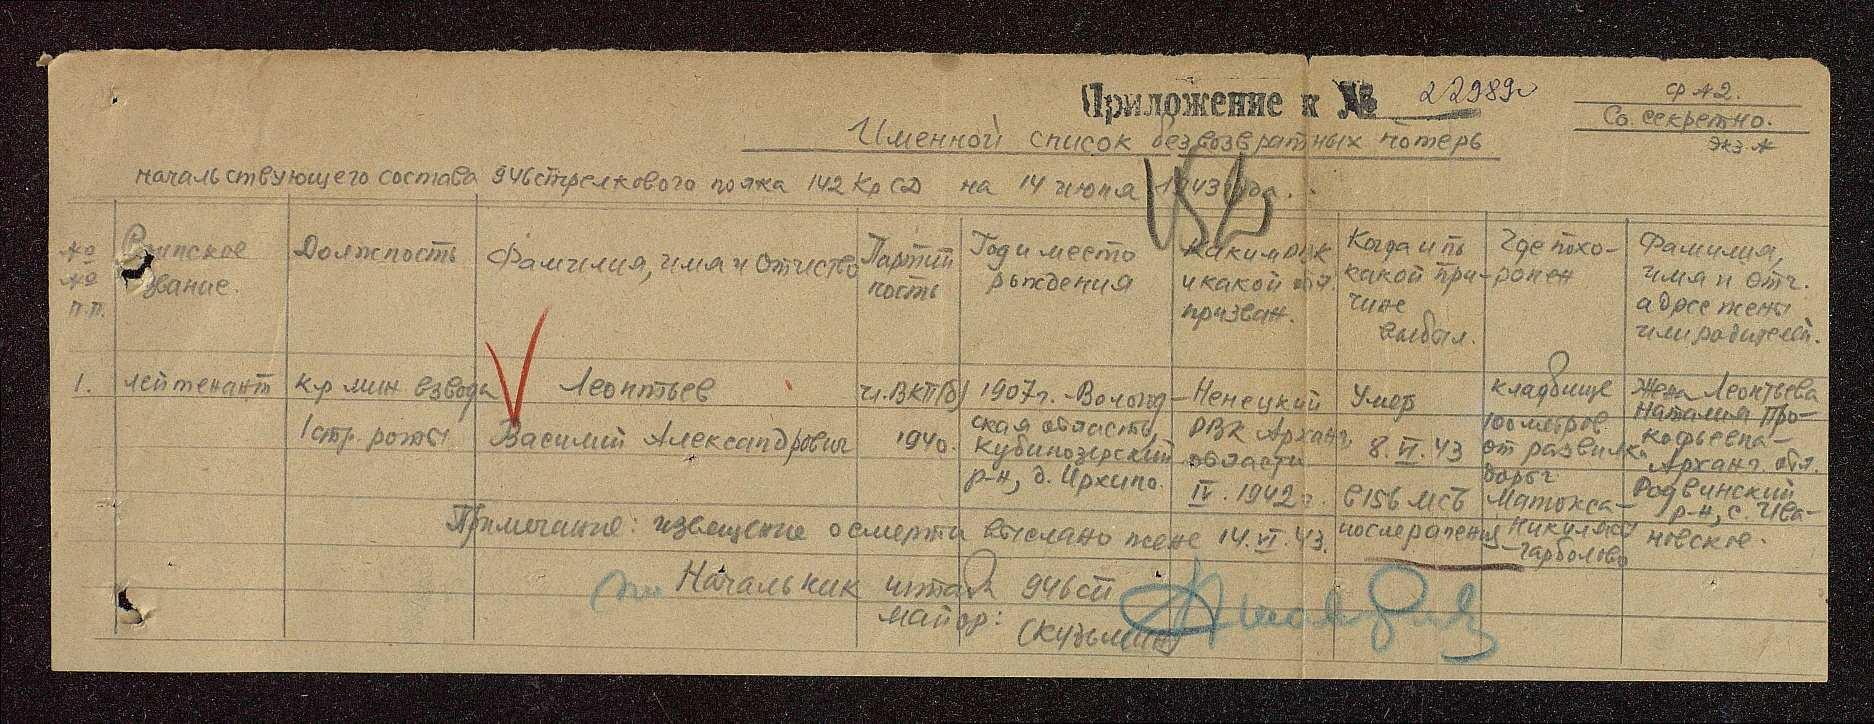 Приложение к № 22989с
ф А2.
Со. секретно.
Экз №
Именной список безвозвратных потерь
начальствующего состава 946 стрелкового полка 142 Кр СД на 14 июня 1943 года.
№ № п.п.
Воинское звание.
Должность
Фамилия, имя и отчество
Партийность
Год и место рождения
Каким РВК и какой обл. призван.
Когда и по какой причине выбыл.
Где похоронен
Фамилия, имя и отч. адрес жены или родителей.
1.
лейтенант
к-р мин взвода
1 стр. роты
Леонтьев
Василий Александрович
чл. ВКП(б)
1940.
1907 г. Вологод-
ская область,
Кубинозерский
р-н, д. Архипо.
Ненецкий
РВК Арханг.
области
IV. 1942 г.
Умер
8. VI. 43
в 156 мсб
после ранения
кладбище
100 метров
от развилки
дорог
Матокса-
Никиляси
-Гарболово
Жена Леонтьева
Наталия Про-
кофьевна-
Арханг. обл.
р-н, с. Ива-
новское.
Примечание: извещение о смерти выслано жене 14. VI. 43.
Начальник штаба 946 сп
майор:
(Кузьмин)